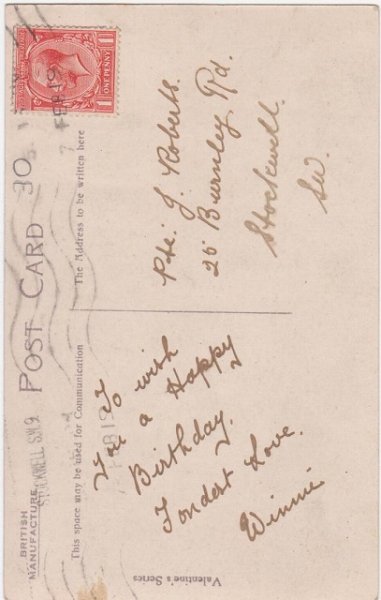 BRITISH
MANUFACTURE
POST CARD
STOCKWELL S.W.9
FEB 19
30
ONE PENNY
1 1
This space may be used for Communication
The Address to be written here
To wish
You a Happy
Birthday.
Fondest Love.
Winnie
Pte: J. Roberts.
25 Burnley Rd.
Stockwell.
SW.
Valentine's Series